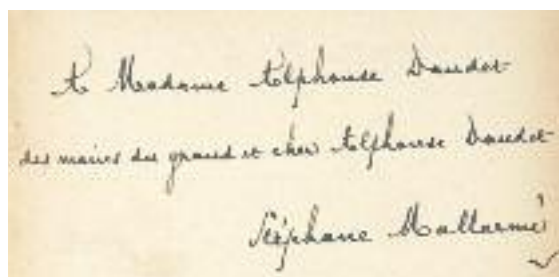 A Madame Alphonse Daudet
des mains du grand et cher Alphonse Daudet
Stéphane Mallarmé